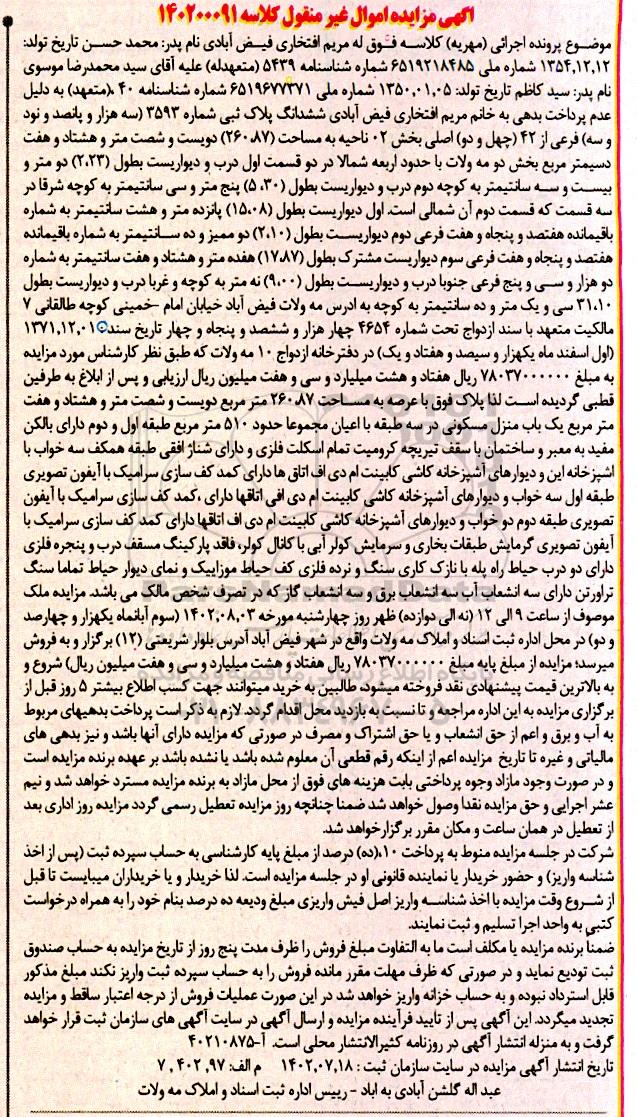 آگهی مزایده اموال غیر منقول کلاسه ۱۴۰۲۰۰۰۹۱
موضوع پرونده اجرائی (مهریه) کلاسه فوق له مریم افتخاری فیض آبادی نام پدر: محمد حسن تاریخ تولد:
۱۳۵۴,۱۲,۱۲ شماره ملی ۶۵۱۹۲۱۸۴۸۵ شماره شناسنامه ۵۴۳۹ (متعهدله) علیه آقای سید محمدرضا موسوی
نام پدر: سید کاظم تاریخ تولد: ۱۳۵۰,۰۱,۰۵ شماره ملی ۶۵۱۹۶۷۷۳۷۱ شماره شناسنامه ۴۰ ،(متعهد) به دلیل
عدم پرداخت بدهی به خانم مریم افتخاری فیض آبادی ششدانگ پلاک ثبی شماره ۳۵۹۳ (سه هزار و پانصد و نود
و سه) فرعی از ۴۲ (چهل و دو) اصلی بخش ۰۲ ناحیه به مساحت (۲۶۰،۸۷) دویست و شصت متر و هشتاد و هفت
دسیمتر مربع بخش دو مه ولات با حدود اربعه شمالا در دو قسمت اول درب و دیواریست بطول (۲،۲۳) دو متر و
بیست و سه سانتیمتر به کوچه دوم درب و دیواریست بطول (۵،۳۰) پنج متر و سی سانتیمتر به کوچه شرقا در
سه قسمت که قسمت دوم آن شمالی است. اول دیواریست بطول (۱۵،۰۸) پانزده متر و هشت سانتیمتر به شماره
باقیمانده هفتصد و پنجاه و هفت فرعی دوم دیواریست بطول (۲،۱۰) دو ممیز و ده سانتیمتر به شماره باقیمانده
هفتصد و پنجاه و هفت فرعی سوم دیواریست مشترک بطول (۱۷،۸۷) هفده متر و هشتاد و هفت سانتیمتر به شماره
دو هزار و سی و پنج فرعی جنوبا درب و دیواریست بطول (۹،۰۰) نه متر به کوچه و غربا درب و دیواریست بطول
۳۱،۱۰ سی و یک متر و ده سانتیمتر به کوچه به ادرس مه ولات فیض آباد خیابان امام -خمینی کوچه طالقانی ۷
مالکیت متعهد با سند ازدواج تحت شماره ۴۶۵۴ چهار هزار و ششصد و پنجاه و چهار تاریخ سند: ۱۳۷۱,۱۲,۰۱
(اول اسفند ماه یکهزار و سیصد و هفتاد و یک) در دفترخانه ازدواج ۱۰ مه ولات که طبق نظر کارشناس مورد مزایده
به مبلغ ۷۸۰۳۷۰۰۰۰۰۰ ریال هفتاد و هشت میلیارد و سی و هفت میلیون ریال ارزیابی و پس از ابلاغ به طرفین
قطبی گردیده است لذا پلاک فوق با عرصه به مساحت ۲۶۰،۸۷ متر مربع دویست و شصت متر و هشتاد و هفت
متر مربع یک باب منزل مسکونی در سه طبقه با اعیان مجموعا حدود ۵۱۰ متر مربع طبقه اول و دوم دارای بالکن
مفید به معبر و ساختمان با سقف تیریچه کرومیت تمام اسکلت فلزی و دارای شناژ افقی طبقه همکف سه خواب با
اشپزخانه این و دیوارهای آشپزخانه کاشی کابینت ام دی اف اتاق ها دارای کمد کف سازی سرامیک با آیفون تصویری
طبقه اول سه خواب و دیوارهای آشپزخانه کاشی کابینت ام دی افی اتاقها دارای ،کمد کف سازی سرامیک با آیفون
تصویری طبقه دوم دو خواب و دیوارهای آشپزخانه کاشی کابینت ام دی اف اتاقها دارای کمد کف سازی سرامیک با
آیفون تصویری گرمایش طبقات بخاری و سرمایش کولر آبی با کانال کولر، فاقد پارکینگ مسقف درب و پنجره فلزی
دارای دو درب حیاط راه پله با نازک کاری سنگ و نرده فلزی کف حیاط موزاییک و نمای دیوار حیاط تماما سنگ
تراورتن دارای سه انشعاب آب سه انشعاب برق و سه انشعاب گاز که در تصرف شخص مالک می باشد. مزایده ملک
موصوف از ساعت ۹ الی ۱۲ (نه الی دوازده) ظهر روز چهارشنبه مورخه ۱۴۰۲,۰۸,۰۳ (سوم آبانماه یکهزار و چهارصد
و دو) در محل اداره ثبت اسناد و املاک مه ولات واقع در شهر فیض آباد آدرس بلوار شریعتی (۱۲) برگزار و به فروش
میرسد؛ مزایده از مبلغ پایه مبلغ ۷۸۰۳۷۰۰۰۰۰۰ ریال هفتاد و هشت میلیارد و سی و هفت میلیون ریال) شروع و
به بالاترین قیمت پیشنهادی نقد فروخته میشود، طالبین به خرید میتوانند جهت کسب اطلاع بیشتر ۵ روز قبل از
برگزاری مزایده به این اداره مراجعه و تا نسبت به بازدید محل اقدام گردد. لازم به ذکر است پرداخت بدهیهای مربوط
به آب و برق و اعم از حق انشعاب و یا حق اشتراک و مصرف در صورتی که مزایده دارای آنها باشد و نیز بدهی های
مالیاتی و غیره تا تاریخ مزایده اعم از اینکه رقم قطعی آن معلوم شده باشد یا نشده باشد بر عهده برنده مزایده است
و در صورت وجود مازاد وجوه پرداختی بابت هزینه های فوق از محل مازاد به برنده مزایده مسترد خواهد شد و نیم
عشر اجرایی و حق مزایده نقدا وصول خواهد شد ضمنا چنانچه روز مزایده تعطیل رسمی گردد مزایده روز اداری بعد
از تعطیل در همان ساعت و مکان مقرر برگزارخواهد شد.
شرکت در جلسه مزایده منوط به پرداخت ۱۰،(ده) درصد از مبلغ پایه کارشناسی به حساب سپرده ثبت (پس از اخذ
شناسه واریز) و حضور خریدار یا نماینده قانونی او در جلسه مزایده است. لذا خریدار و یا خریداران میبایست تا قبل
از شروع وقت مزایده با اخذ شناسه واریز اصل فیش واریزی مبلغ ودیعه ده درصد بنام خود را به همراه درخواست
کتبی به واحد اجرا تسلیم و ثبت نمایند.
ضمناً برنده مزایده یا مکلف است ما به التفاوت مبلغ فروش را ظرف مدت پنج روز از تاریخ مزایده به حساب صندوق
ثبت تودیع نماید و در صورتی که ظرف مهلت مقرر مانده فروش را به حساب سپرده ثبت واریز نکند مبلغ مذکور
قابل استرداد نبوده و به حساب خزانه واریز خواهد شد در این صورت عملیات فروش از درجه اعتبار ساقط و مزایده
تجدید میگردد. این آگهی پس از تایید فرآینده مزایده و ارسال آگهی در سایت آگهی های سازمان ثبت قرار خواهد
گرفت و به منزله انتشار آگهی در روزنامه کثیرالانتشار محلی است. آ-۴۰۲۱۰۸۷۵
تاریخ انتشار آگهی مزایده در سایت سازمان ثبت : ۱۴۰۲,۰۷,۱۸ م الف: ۹۷ ,۴۰۲ , ۷
عبد اله گلشن آبادی به اباد - رییس اداره ثبت اسناد و املاک مه ولات